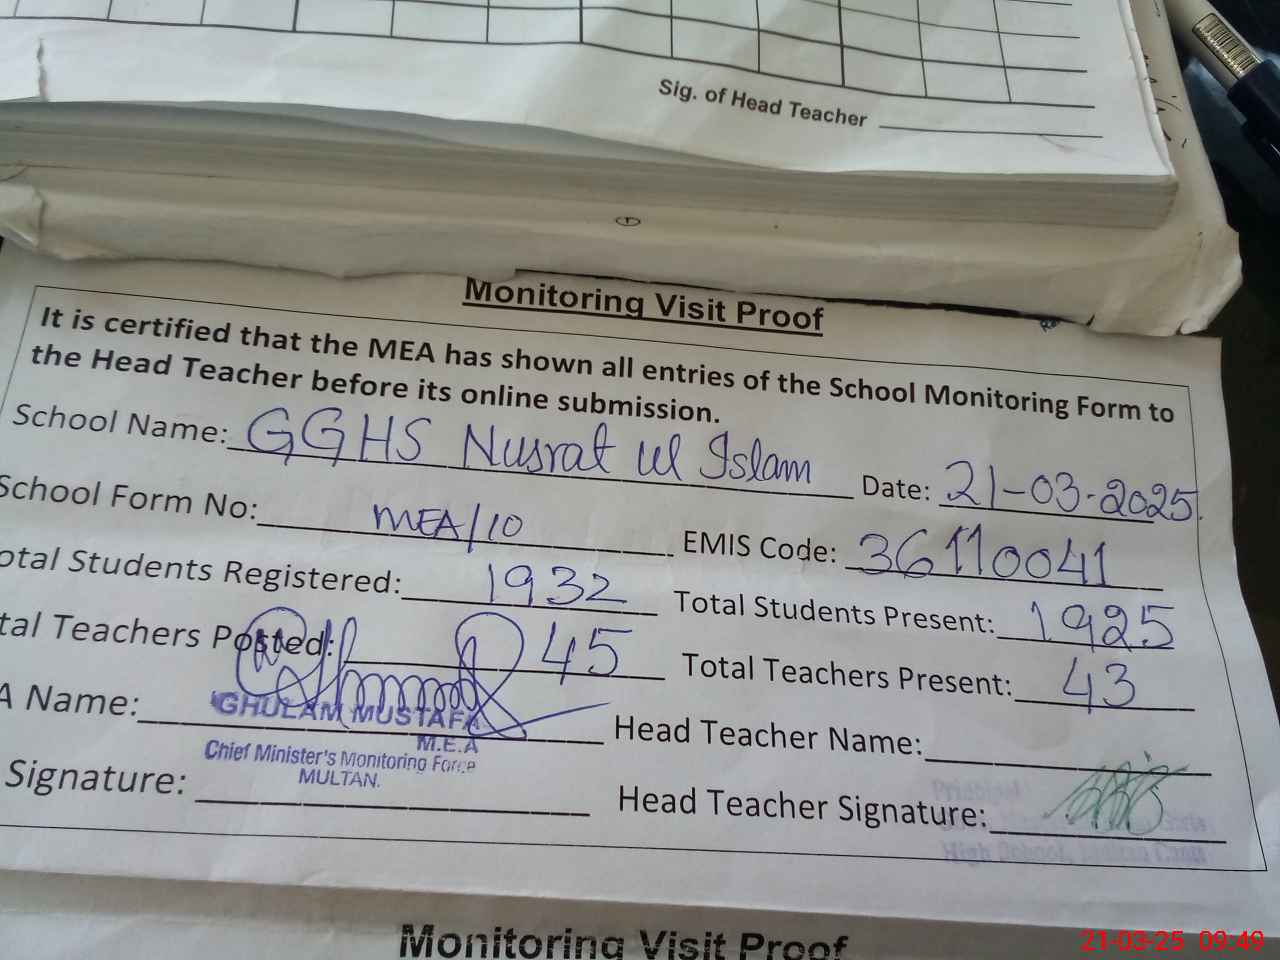 Sig. of Head Teacher
Monitoring Visit Proof
It is certified that the MEA has shown all entries of the School Monitoring Form to
the Head Teacher before its online submission.
School Name: GGHS Nusrat ul Islam Date: 21-03-2025.
School Form No: MEA/10 EMIS Code: 36110041
otal Students Registered: 1932 Total Students Present: 1925
tal Teachers Posted: 45 Total Teachers Present: 43
A Name: Head Teacher Name:
GHULAM MUSTAFA
M.E.A
Chief Minister's Monitoring Force
MULTAN.
Signature: Head Teacher Signature:
Principal
High School,
Monitoring Visit Proof
21-03-25 09:49